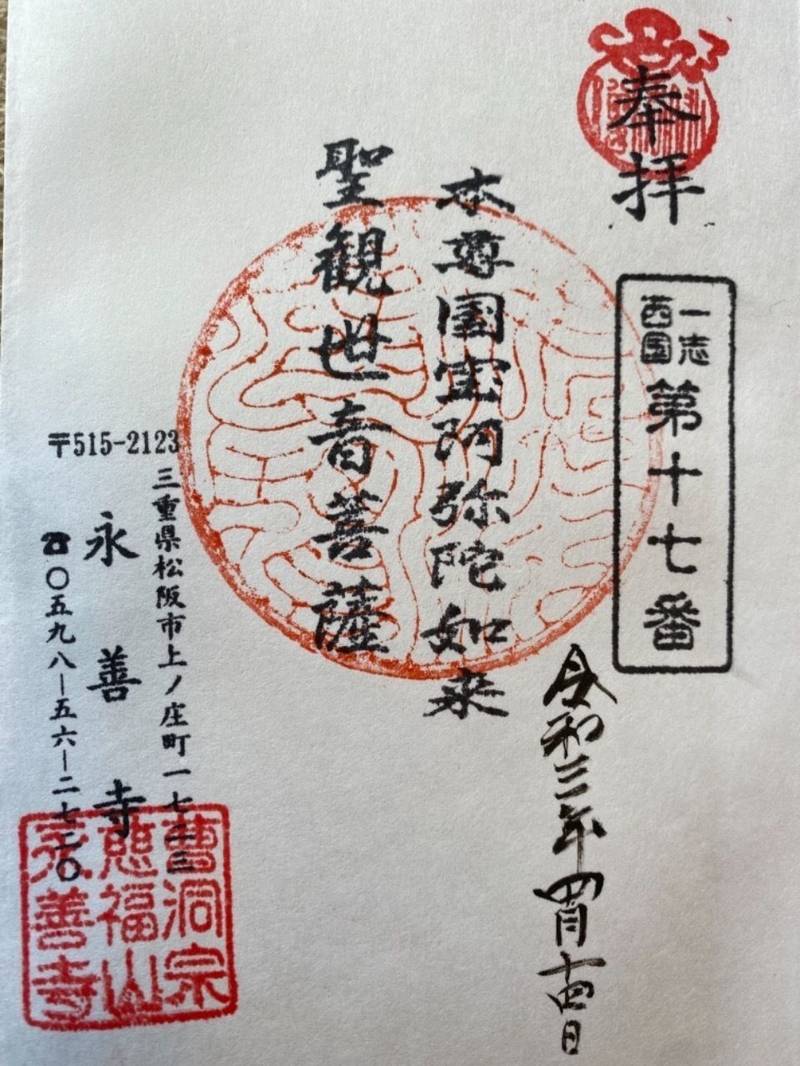 奉拝
一志
西国
第十七番
令和三年四月十四日
本尊国宝阿弥陀如来
聖観世音菩薩
〒515-2123
三重県松阪市上ノ庄町一七
永善寺
☎〇五九八ー五六ー二七
曹洞宗
慈福山
永善寺